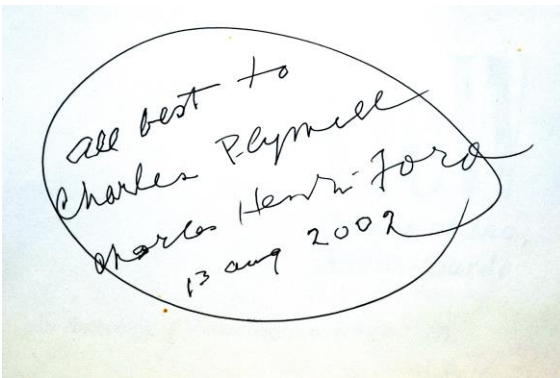 all best to
Charles Plymell
Charles Henri Ford
13 aug 2002